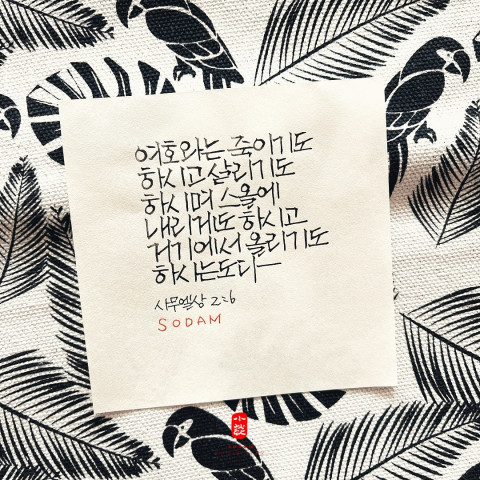 여호와는 죽이기도
하시고 살리기도
하시며 스올에
내리게도 하시고
거기에서 올리기도
하시는도다
사무엘상 2:6
SODAM